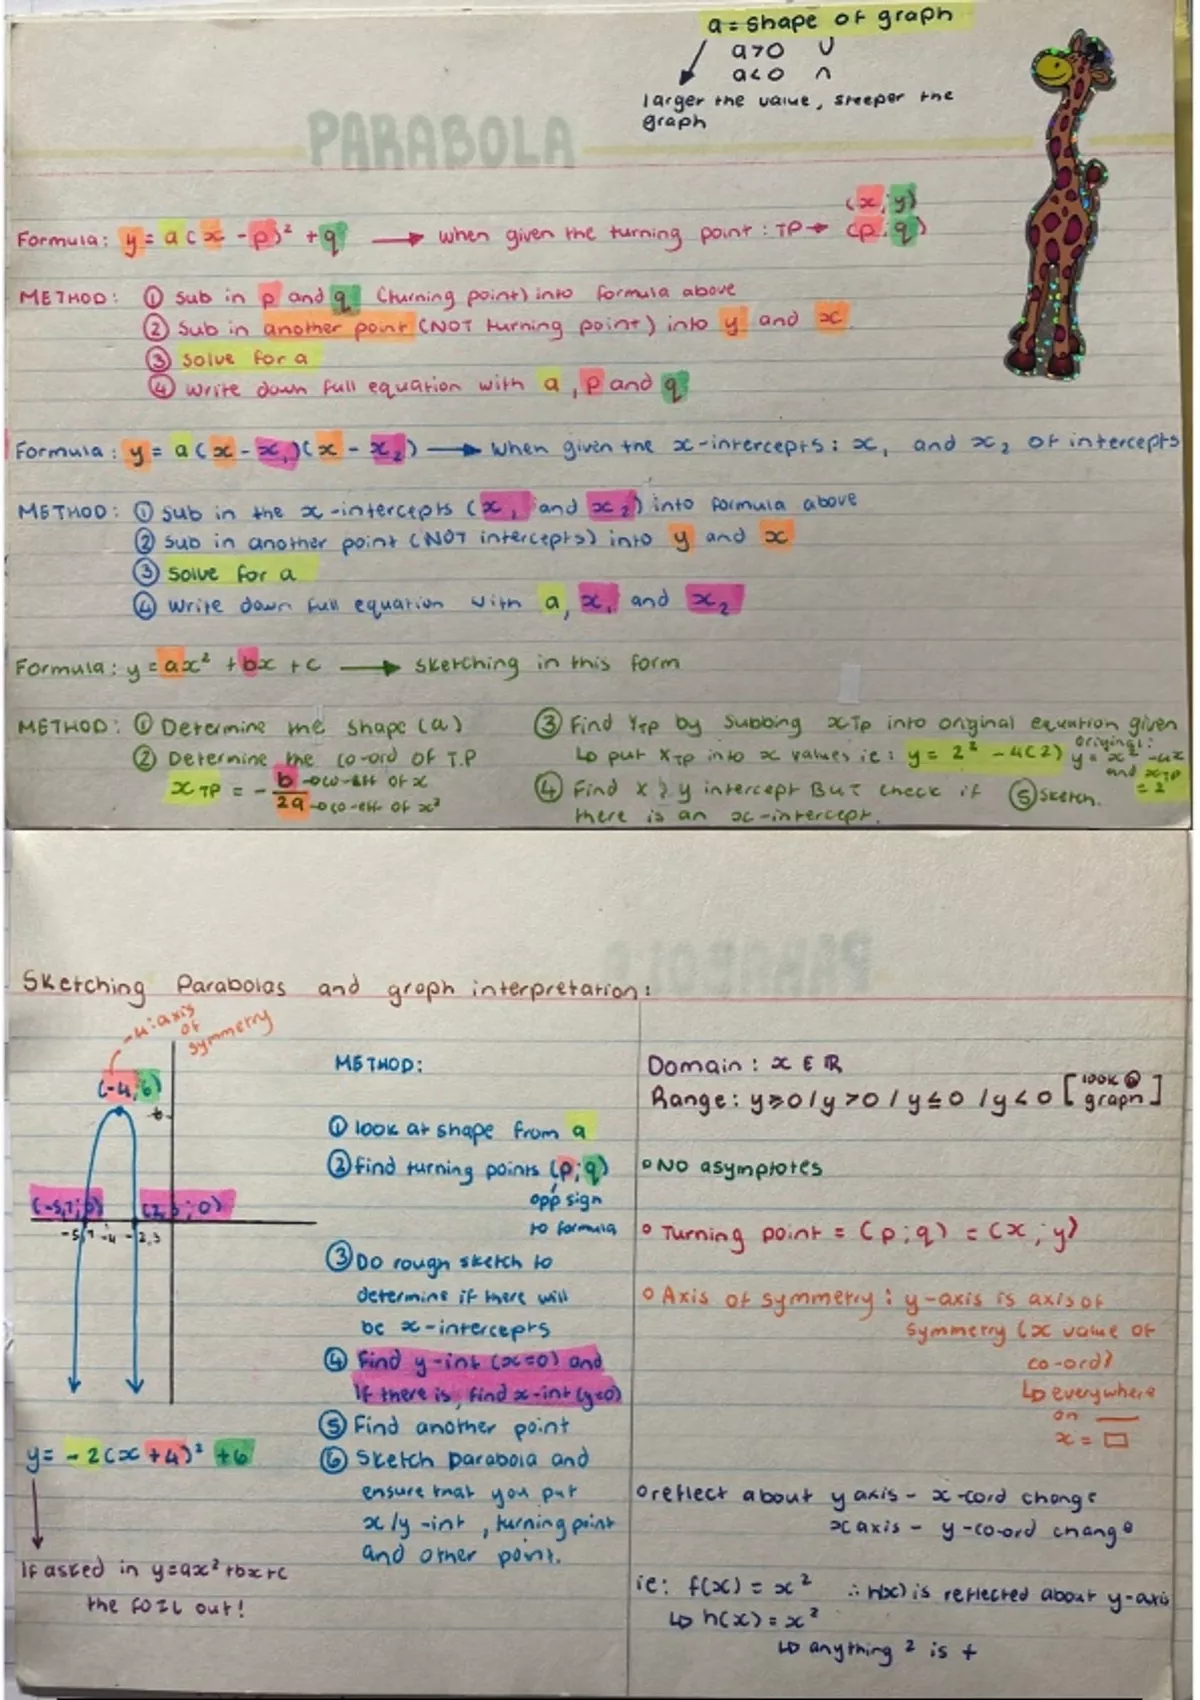 a = shape of graph
a>0 ∪
a<0 ∩
larger the value, steeper the
graph
PARABOLA
(x;y)
Formula: y = a(x - p)² + q → when given the turning point: TP → (p;q)
METHOD: ① Sub in p and q (turning point) into formula above
② Sub in another point (NOT turning point) into y and x
③ solve for a
④ Write down full equation with a, p and q
Formula: y = a(x - x₁)(x - x₂) → When given the x-intercepts: x₁ and x₂ of intercepts
METHOD: ① Sub in the x-intercepts (x₁ and x₂) into formula above
② Sub in another point (NOT intercepts) into y and x
③ Solve for a
④ Write down full equation with a, x₁ and x₂
Formula: y = ax² + bx + c → sketching in this form
METHOD: ① Determine the shape (a)
② Determine the co-ord of T.P
x TP = - b/2a → co-eff of x
→ co-eff of x²
③ Find YTP by subbing xTP into original equation given
↳ put XTP into x values ie: y = 2² - 4(2)
original:
y = x² - 4x
and xTP
= 2
④ Find x & y intercept BUT check if
there is an x-intercept.
⑤ Sketch.
Sketching Parabolas and graph interpretation:
-4: axis
of
symmetry
(-4;6)
6
(-5,7;0) (2,3;0)
-5,7 -4 -2,3
y = -2(x+4)² +6
If asked in y=ax²+bx+c
the FOIL out!
METHOD:
① look at shape from a
② find turning points (p;q)
opp sign
to formula
③ Do rough sketch to
determine if there will
be x-intercepts
④ Find y-int (x=0) and
If there is, find x-int (y=0)
⑤ Find another point
⑥ Sketch parabola and
ensure that you put
x/y-int, turning point
and other point.
Domain: x ∈ ℝ
Range: y≥0 / y>0 / y≤0 / y<0 [look @ graph]
• No asymptotes
• Turning point = (p;q) = (x;y)
• Axis of symmetry: y-axis is axis of
symmetry (x value of
co-ord)
↳ everywhere
on __
x = □
• reflect about y axis - x-cord change
x axis - y-co-ord change
ie: f(x) = x² ∴ h(x) is reflected about y-axis
↳ h(x) = x²
↳ anything ² is +